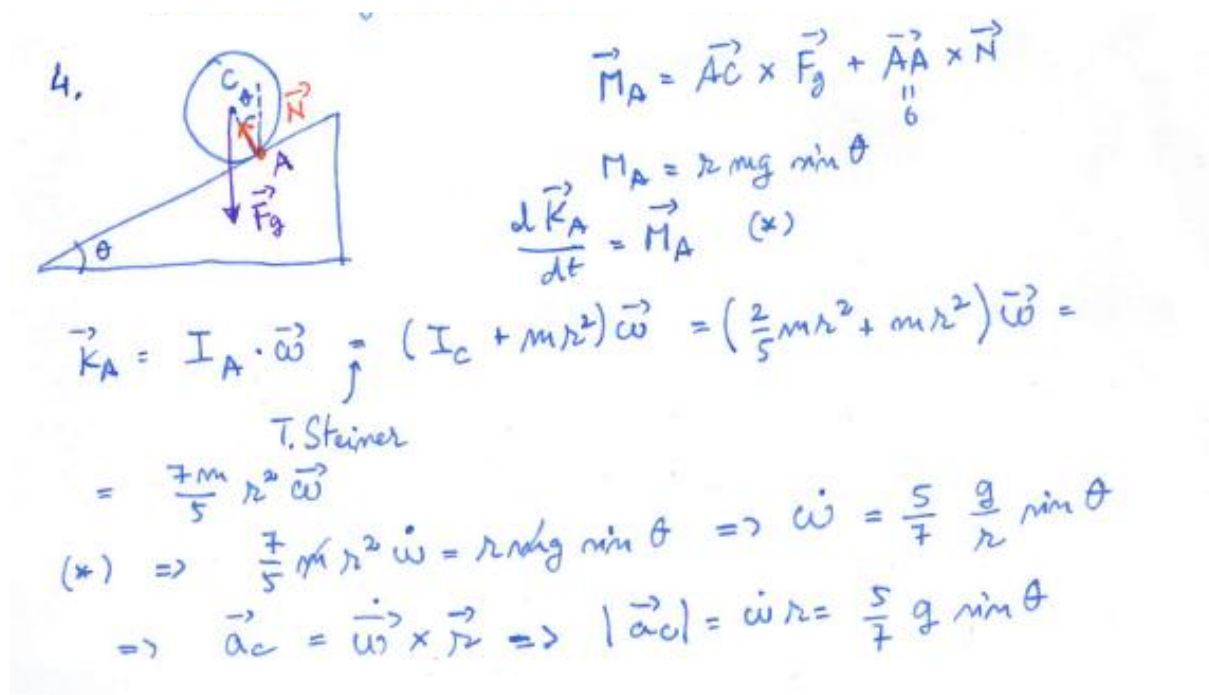 4.
C
θ
N⃗
A
F⃗g
θ
M⃗_A = AC⃗ × F⃗g + AA⃗ × N⃗
"
0
M_A = r mg sin θ
dK⃗_A/dt = M⃗_A (*)
K⃗_A = I_A · ω⃗ = (I_C + mr²) ω⃗ = (2/5 mr² + mr²) ω⃗ =
T. Steiner
= 7m/5 r² ω⃗
(*) => 7/5 m r² ω̇ = r mg sin θ => ω̇ = 5/7 g/r sin θ
=> a⃗c = ω⃗̇ × r⃗ => |a⃗c| = ω̇ r = 5/7 g sin θ